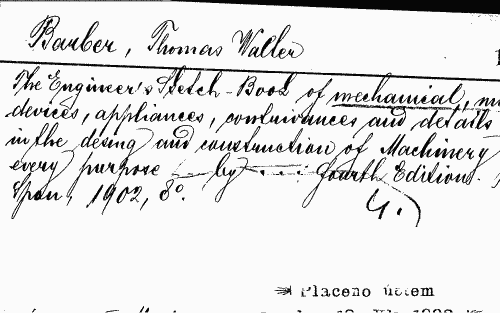 Barber, Thomas Walter
The Engineer's Sketch-Book of mechanical,
devices, appliances, contrivances and details
in the desing and construction of Machinery
every purpose — by . . . : fourth Edition.
Spon, 1902, 8°.
4.
Placeno účtem